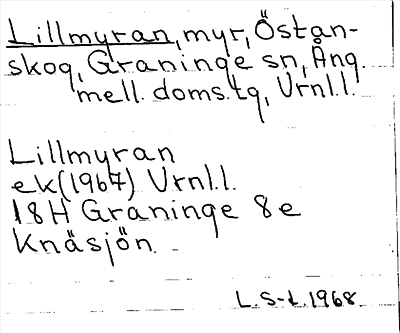 Lillmyran, myr, Östan-
skog, Graninge sn, Ång.
mell. doms.tg, Vrnl.l.
Lillmyran
ek(1967) Vrnl.l.
18H Graninge 8e
Knäsjön.
L.S-t.1968